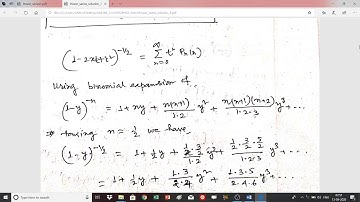 (1-2xt+t²)^{-1/2} = ∑_{n=0}^{∞} tⁿ Pₙ(x)
Using binomial expansion of
(1-y)^{-n} = 1+ny + n(n+1)/1·2 y² + n(n+1)(n+2)/1·2·3 y³ + ···
taking n = 1/2 we have
(1-y)^{-1/2} = 1+ 1/2 y + 1/2·3/2/1·2 y² + 1/2·3/2·5/2/1·2·3 y³ + ···
= 1+ 1/2 y + 1·3/2·4 y² + 1·3·5/2·4·6 y³ ···